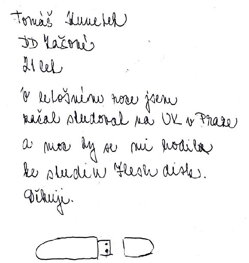 Tomáš Kuneteh
DD Zažoné
21 let
V letošním roce jsem
začal studovat na UK v Praze
a moc by se mi hodila
ke studiu Flesh disk.
Děkuji.